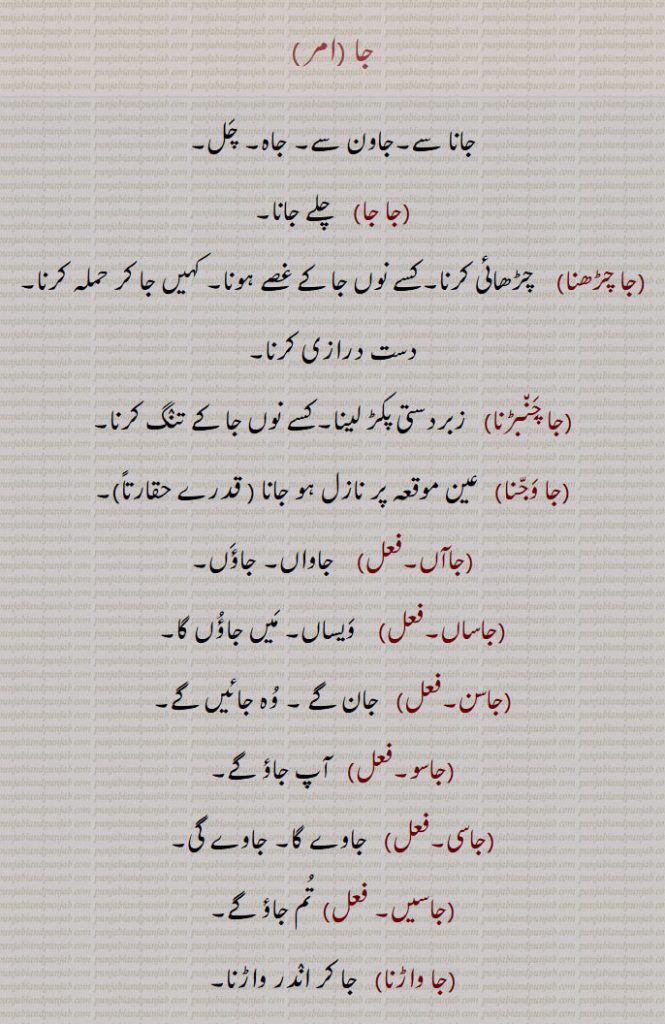 جا (امر)
جانا سے۔جاون سے۔ جاہ۔ چَل۔
(جا جا) چلے جانا۔
(جا چڑھنا) چڑھائی کرنا۔کسے نوں جا کے غصے ہونا۔ کہیں جا کر حملہ کرنا۔
دست درازی کرنا۔
(جا چَنّبڑنا) زبردستی پکڑ لینا۔کسے نوں جا کے تنگ کرنا۔
(جا وَجّنا) عین موقعہ پر نازل ہو جانا ( قدرے حقارتاً)۔
(جاآں۔فعل) جاواں۔ جاؤَں۔
(جاساں۔فعل) وَیساں۔ مَیں جاؤُں گا۔
(جاسن۔فعل) جان گے ۔ وُہ جائیں گے۔
(جاسو۔فعل) آپ جاؤ گے۔
(جاسی۔فعل) جاوے گا۔ جاوے گی۔
(جاسیں۔ فعل) تُم جاؤ گے۔
(جا واڑنا) جا کر انٛدر واڑنا۔